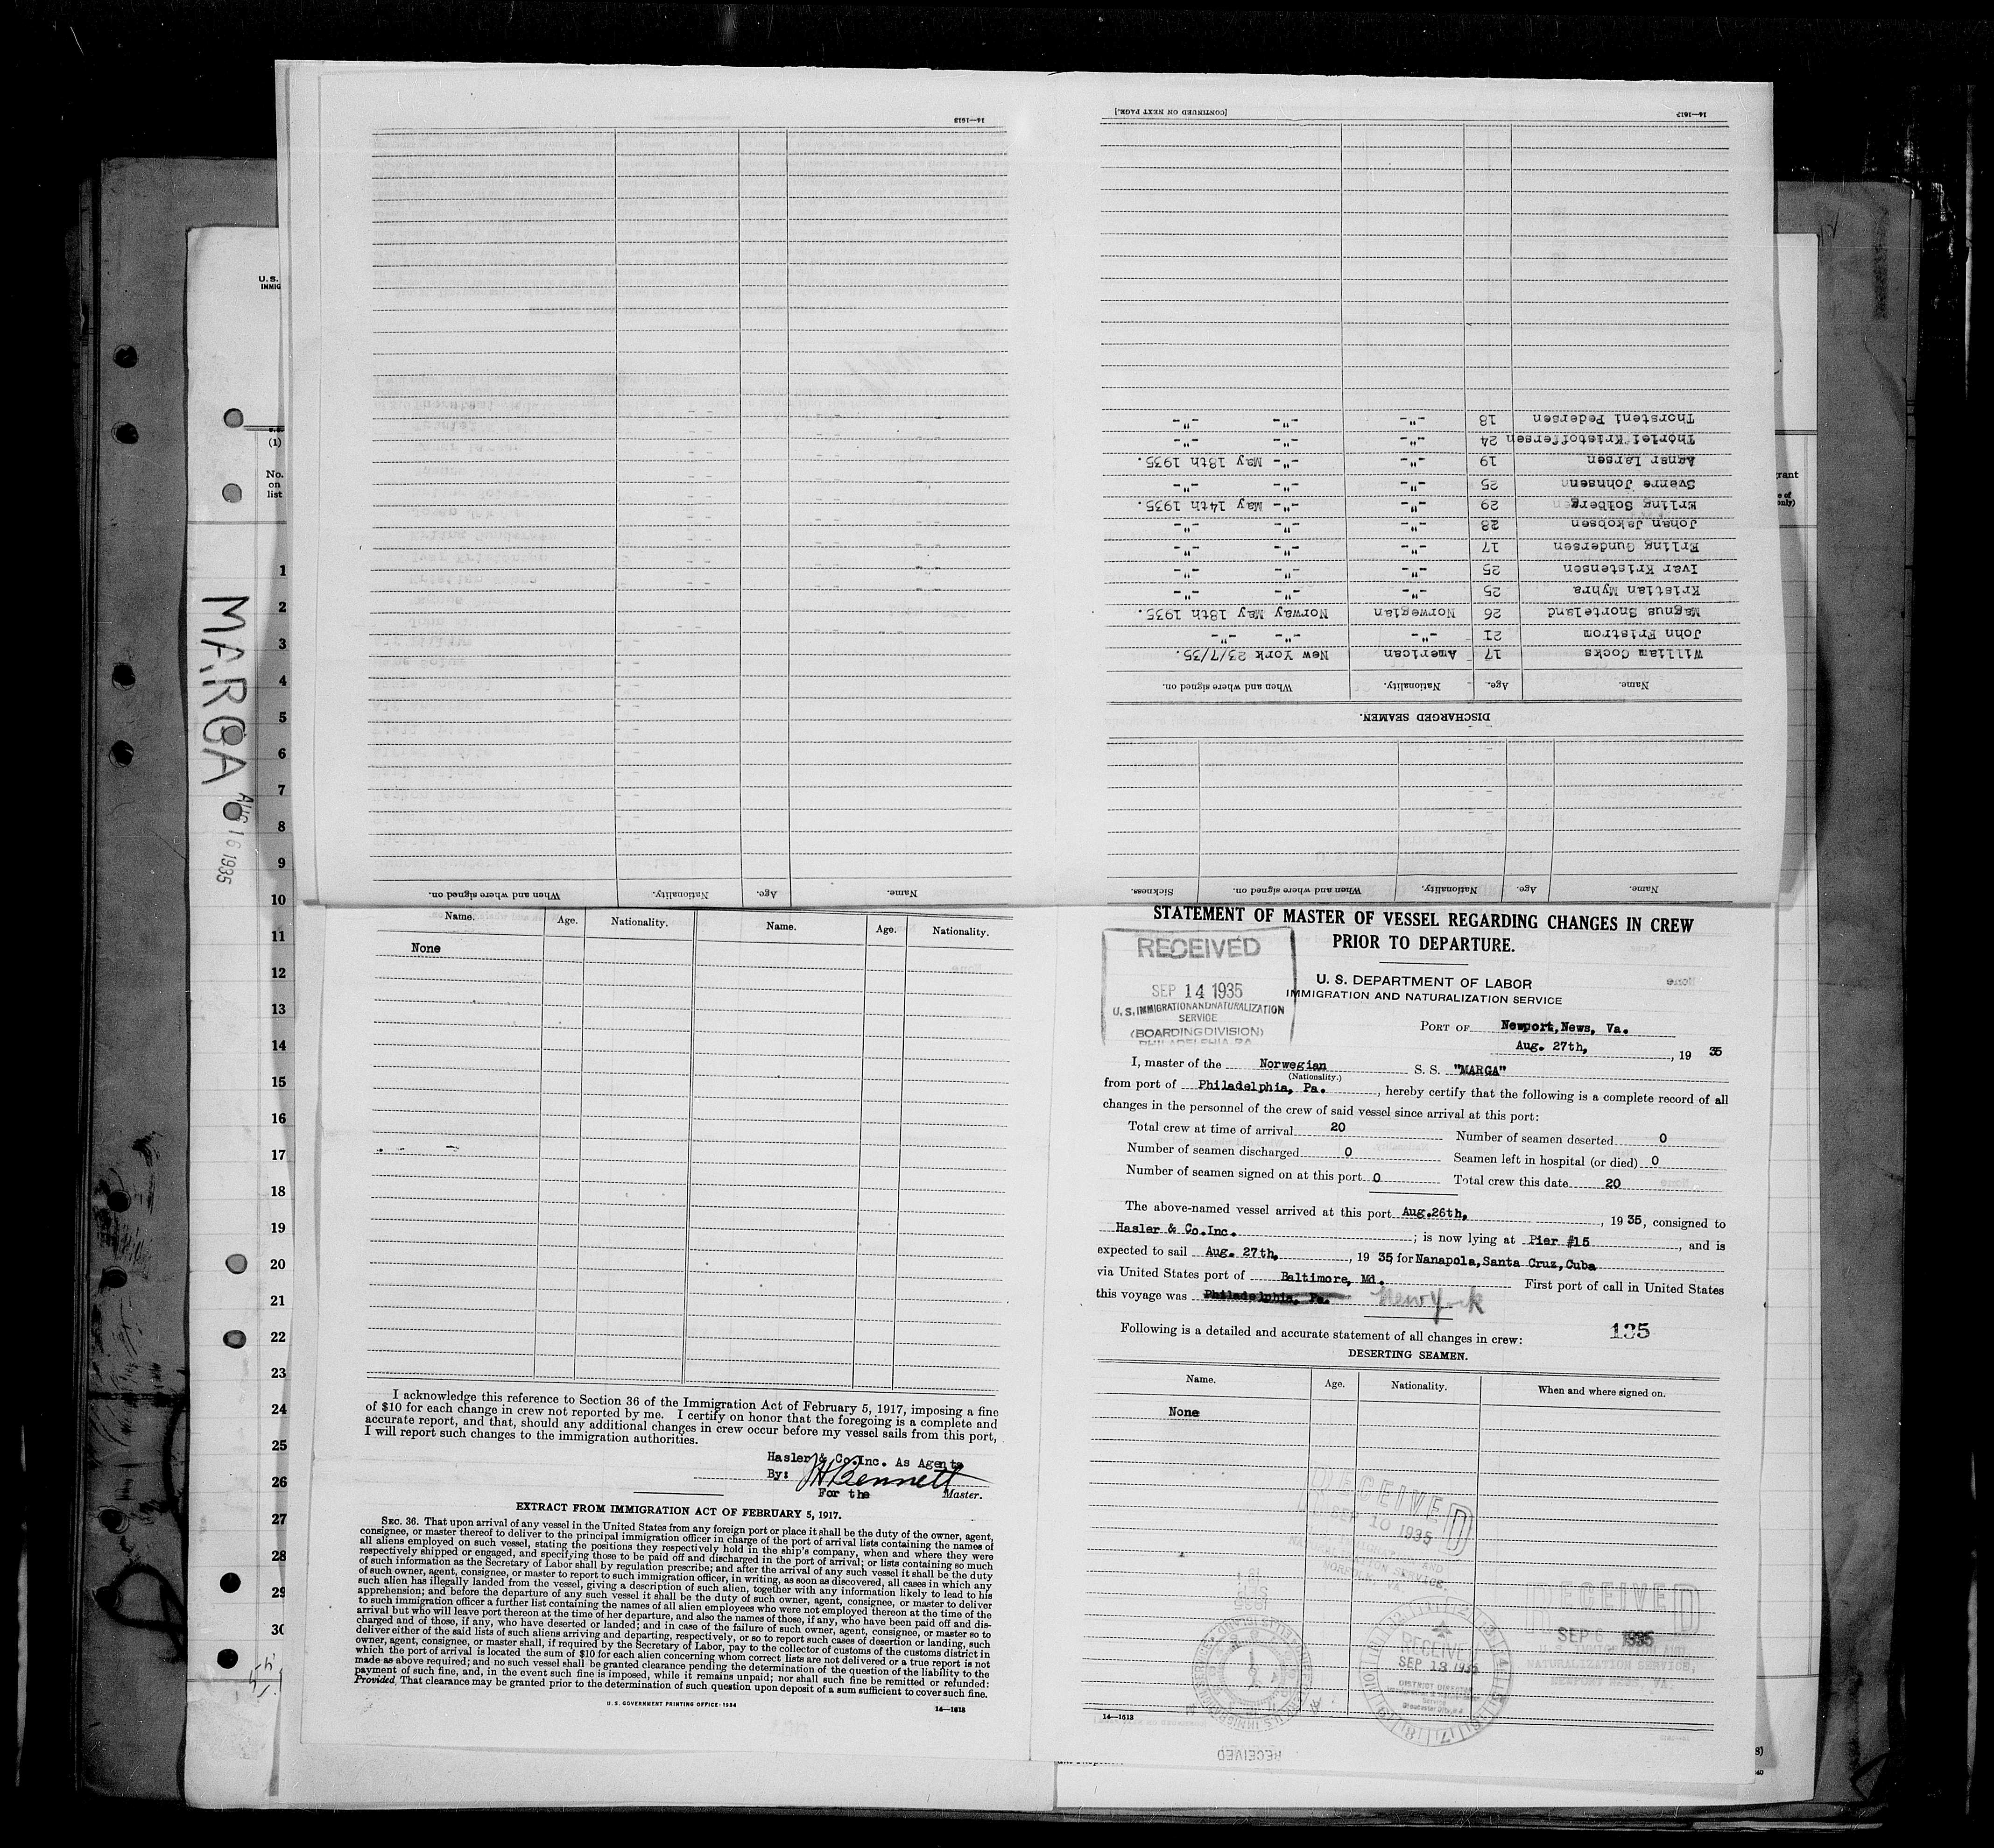 14—1613
Name. Age. Nationality. When and where signed on.
Name. Age. Nationality. When and where signed on. Sickness.
DISCHARGED SEAMEN.
Name. Age. Nationality. When and where signed on.
William Cocks 17 American New York 23/7/35.
John Fristrom 21 -"- -"- -"-
Magnus Snorteland 26 Norwegian Norway May 18th 1935.
Kristian Myhra 25 -"- -"- -"-
Ivar Kristensen 25 -"- -"- -"-
Erling Gundersen 17 -"- -"- -"-
Johan Jakobsen 28 -"- -"- -"-
Erling Solberg 29 -"- -"- May 14th 1935.
Sverre Johnsen 25 -"- -"- -"-
Agnar Larsen 19 -"- -"- May 18th 1935.
Thorlei Kristoffersen 24 -"- -"- -"-
Thorsteni Pedersen 18 -"- -"- -"-
14—1613 [CONTINUED ON NEXT PAGE.]
U. S.
IMMIG
(1)
No.
on
list
1
2
3
4
5
6
7
8
9
10
11
12
13
14
15
16
17
18
19
20
21
22
23
24
25
26
27
28
29
30
MARGA
AUG 16 1935
Name. Age. Nationality. Name. Age. Nationality.
None
I acknowledge this reference to Section 36 of the Immigration Act of February 5, 1917, imposing a fine
of $10 for each change in crew not reported by me. I certify on honor that the foregoing is a complete and
accurate report, and that, should any additional changes in crew occur before my vessel sails from this port,
I will report such changes to the immigration authorities.
Hasler & Co.Inc. As Agents
By: Bennett
For the Master.
EXTRACT FROM IMMIGRATION ACT OF FEBRUARY 5, 1917.
SEC. 36. That upon arrival of any vessel in the United States from any foreign port or place it shall be the duty of the owner, agent,
consignee, or master thereof to deliver to the principal immigration officer in charge of the port of arrival lists containing the names of
all aliens employed on such vessel, stating the positions they respectively hold in the ship's company, when and where they were
respectively shipped or engaged, and specifying those to be paid off and discharged in the port of arrival; or lists containing so much
of such information as the Secretary of Labor shall by regulation prescribe; and after the arrival of any such vessel it shall be the duty
of such owner, agent, consignee, or master to report to such immigration officer, in writing, as soon as discovered, all cases in which any
such alien has illegally landed from the vessel, giving a description of such alien, together with any information likely to lead to his
apprehension; and before the departure of any such vessel it shall be the duty of such owner, agent, consignee, or master to deliver
to such immigration officer a further list containing the names of all alien employees who were not employed thereon at the time of the
arrival but who will leave port thereon at the time of her departure, and also the names of those, if any, who have been paid off and dis-
charged and of those, if any, who have deserted or landed; and in case of the failure of such owner, agent, consignee, or master so to
deliver either of the said lists of such aliens arriving and departing, respectively, or so to report such cases of desertion or landing, such
owner, agent, consignee, or master shall, if required by the Secretary of Labor, pay to the collector of customs of the customs district in
which the port of arrival is located the sum of $10 for each alien concerning whom correct lists are not delivered or a true report is not
made as above required; and no such vessel shall be granted clearance pending the determination of the question of the liability to the
payment of such fine, and, in the event such fine is imposed, while it remains unpaid; nor shall such fine be remitted or refunded:
Provided, That clearance may be granted prior to the determination of such question upon deposit of a sum sufficient to cover such fine.
U. S. GOVERNMENT PRINTING OFFICE: 1934
14—1613
STATEMENT OF MASTER OF VESSEL REGARDING CHANGES IN CREW
PRIOR TO DEPARTURE.
RECEIVED
SEP 14 1935
U. S. IMMIGRATION AND NATURALIZATION
SERVICE
(BOARDING DIVISION)
PHILADELPHIA, PA.
U. S. DEPARTMENT OF LABOR
IMMIGRATION AND NATURALIZATION SERVICE
PORT OF Newport,News, Va.
Aug. 27th, , 19 35
I, master of the Norwegian S. S. "MARGA"
(Nationality.)
from port of Philadelphia, Pa. , hereby certify that the following is a complete record of all
changes in the personnel of the crew of said vessel since arrival at this port:
Total crew at time of arrival 20 Number of seamen deserted 0
Number of seamen discharged 0 Seamen left in hospital (or died) 0
Number of seamen signed on at this port 0 Total crew this date 20
The above-named vessel arrived at this port Aug.26th, , 19 35, consigned to
Hasler & Co.Inc. ; is now lying at Pier #15 , and is
expected to sail Aug. 27th, , 19 35, for Nanapola,Santa Cruz,Cuba
via United States port of Baltimore, Md. First port of call in United States
this voyage was Philadelphia, Pa. New York
Following is a detailed and accurate statement of all changes in crew: 135
DESERTING SEAMEN.
Name. Age. Nationality. When and where signed on.
None
RECEIVED
SEP 10 1935
NATURALIZATION SERVICE.
NORFOLK, VA.
RECEIVED
SEP 1935
U. S. IMMIGRATION AND
NATURALIZATION SERVICE,
NEWPORT NEWS, VA.
RECEIVED
SEP 13 1935
DISTRICT DIRECTOR
Gloucester City, N.J.
14—1613
RECEIVED